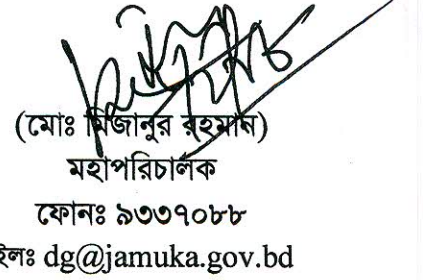 (মোঃ মিজানুর রহমান)
মহাপরিচালক
ফোনঃ ৯৩৩৭০৮৮
ইলঃ dg@jamuka.gov.bd